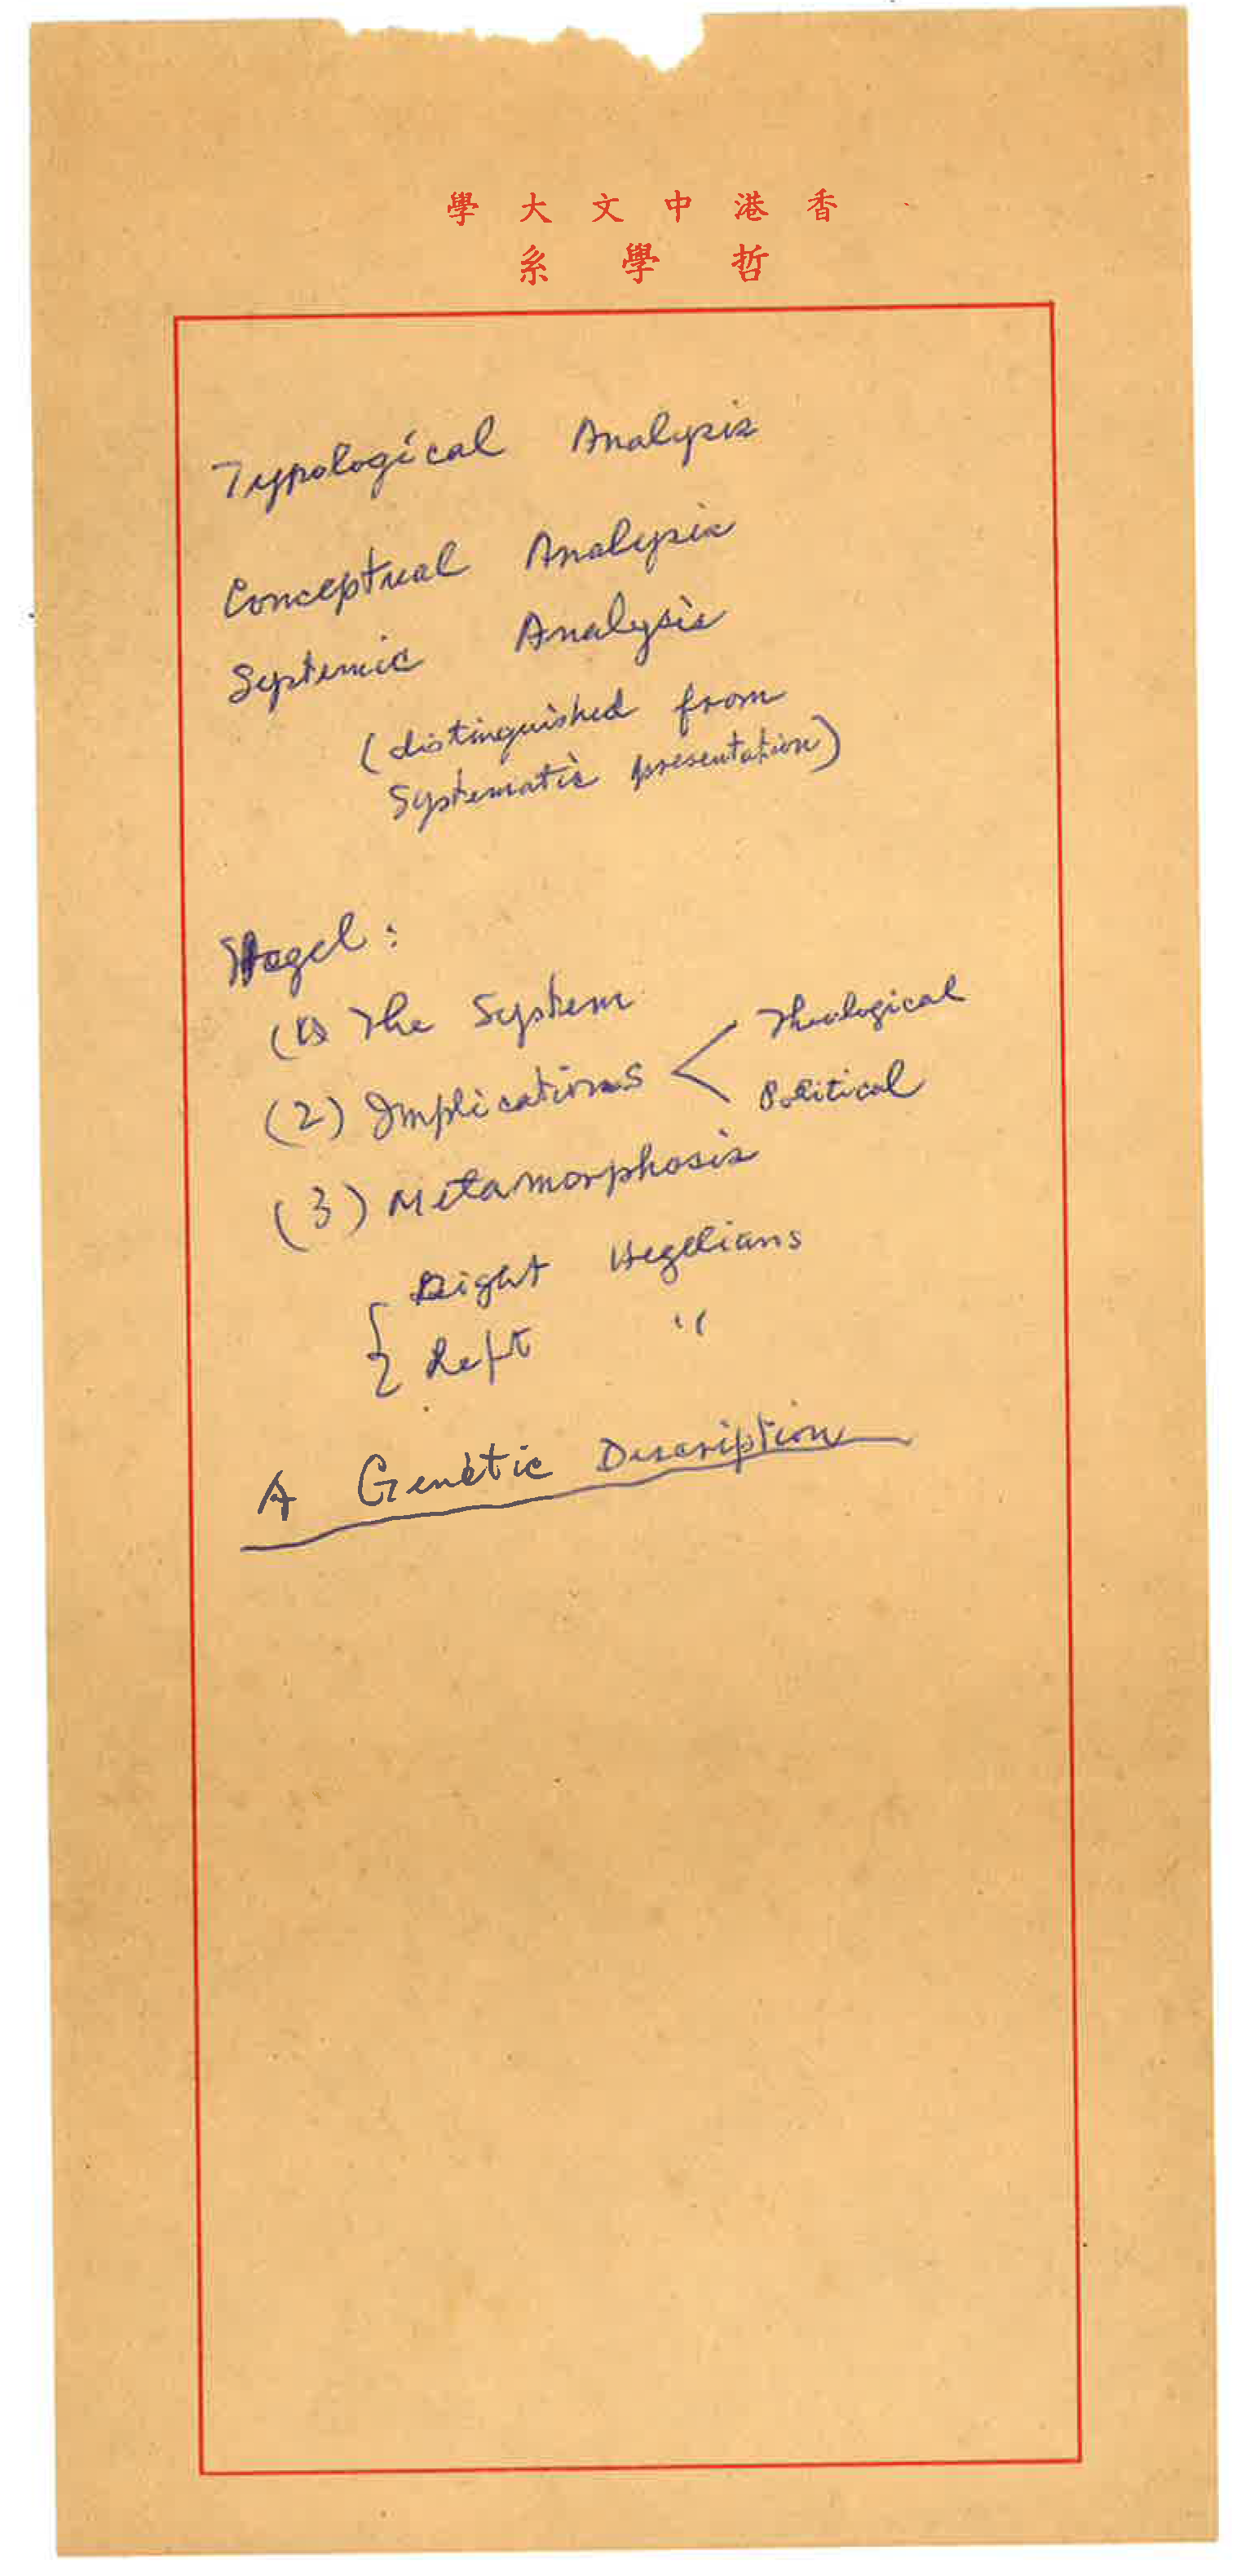 香港中文大學
哲學系
Typological Analysis
Conceptual Analysis
Systemic Analysis
(distinguished from
Systematic presentation)
Hegel:
(1) The System
(2) Implications < Theological
Political
(3) Metamorphosis
{ Right Hegelians
Left "
A Genetic Description